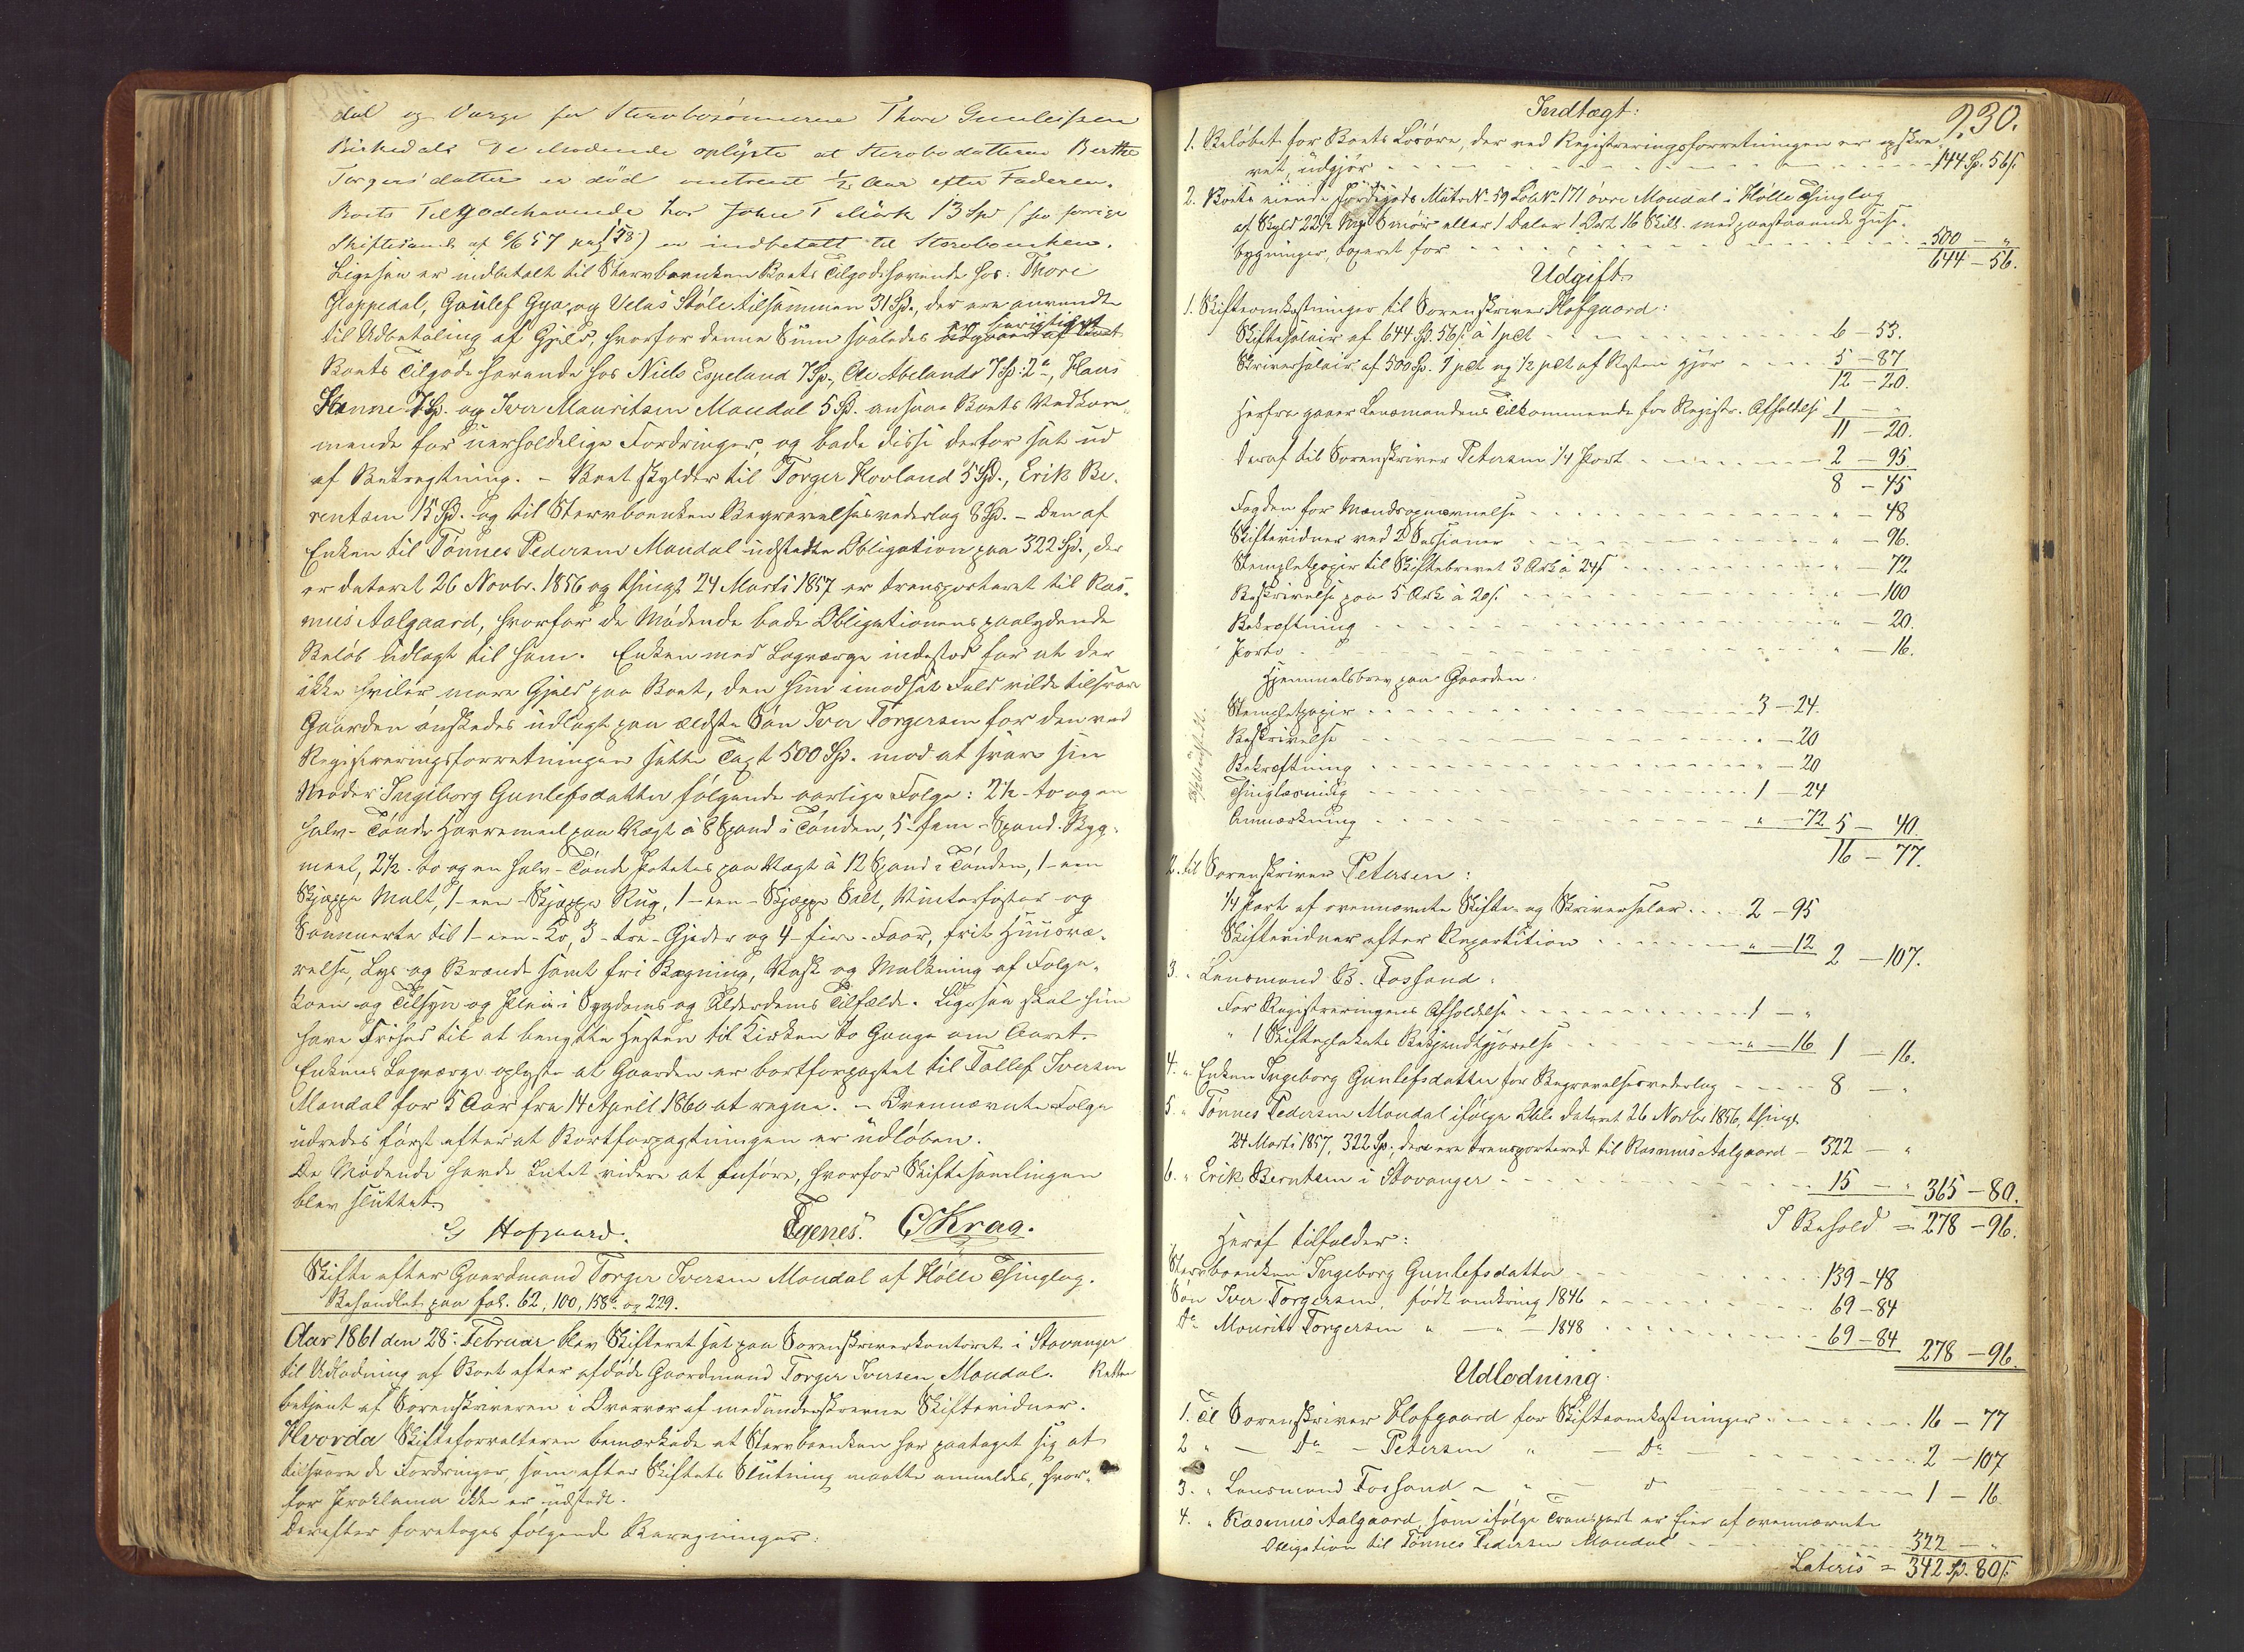 dal og Værge for Stervbosønnerne Thore Gunleifsen
Birkedal. De Mødende oplyste at Stervbodatteren Berthe
Torgersdatter er død omtrent 1/2 Aar efter Faderen.
Boets Tilgodehavende hos John T Mörk 13 Spd (se forrige
Skiftesaml. af 6/6 57 pag 158) er indbetalt til Stervboenken.
Ligesaa er indbetalt til Stervboenken Boets Tilgodehavende hos: Thore
Gloppedal, Gunlef Gya, og Velas Støle tilsammen 31 Spd., der ere anvendte
til Udbetaling af Gjeld, hvorfor denne Sum saaledes
Boets Tilgodehavende hos Niels Espeland 7 Sp., Ole Abeland 7 Sp: 2, Hans
Stenne 7 Sp. og Iver Mauritsen Maudal 5 Sp. ansaae Boets Vedkom-
mende for uerholdelige Fordringer, og bade disse derfor sat ud
af Betragtning. - Boet skylder til Torger Hovland 5 Spd., Erik Be-
rentsen 15 Spd. og til Stervboenken Begravelsesvederlag 8 Sp. - Den af
Enken til Tønnes Pedersen Maudal udstedte Obligation paa 322 Spd., der
er dateret 26 Novbr. 1856 og thingl. 24 Marts 1857 er transporteret til Ras-
mus Aalgaard, hvorfor de Mødende bade Obligationens paalydende
Beløb udlagt til ham. Enken med Laugværge indestod for at der
ikke hviler mere Gjeld paa Boet, den hun i modsat Fald vilde tilsvare
Gaarden ønskedes udlagt paa ældste Søn Iver Torgersen for den ved
Registreringsforretningen satte Taxt 500 Spd. mod at svare sin
Moder Ingeborg Gunlefsdatter følgende aarlige Folge: 2 1/2 - to og en
halv - Tønde Havremeel paa Vægt à 8 Spand i Tønden, 5 - fem - Spand Byg-
meel, 2 1/2 - to og en halv - Tønde Potetes paa Vægt à 12 Spand i Tønden, 1 - een
Skjæppe Malt, 1 - een - Skjæppe Rug, 1 - een - Skjæppe Salt, Vinterfoster og
Sommerbeite til 1 - een - Ko, 3 - tre - Gjeder og 4 - fire - Faar, frit Huusvæ-
relse, Lys og Brænde samt fri Bagning, Vask og Malkning af Folge-
koen og Tilsyn og Pleie i Sygdoms og Alderdoms Tilfælde. Ligesaa skal hun
have Frihed til at benytte Hesten til Kirken to Gange om Aaret.
Enkens Laugværge oplyste at Gaarden er bortforpagtet til Tallef Iversen
Maudal for 5 Aar fra 14 April 1860 at regne. - Ovennævnte Folge
udredes først efter at Bortforpagtningen er udløben.
De Mødende havde Intet videre at anføre, hvorfor Skiftesamlingen
blev sluttet.
G Hofgaard. Egenes. C Krag.
Skifte efter Gaardmand Torger Iversen Maudal af Hølle Thinglag.
Behandlet paa fol. 62, 100, 158 og 229.
Aar 1861 den 28 Februar blev Skifteret sat paa Sorenskriverkontoret i Stavanger
til Udlodning af Boet efter afdøde Gaardmand Torger Iversen Maudal. Retten
betjent af Sorenskriveren i Overvær af medunderskrevne Skiftevidner.
Hvorda Skifteforvalteren bemærkede at Stervboenken har paataget sig at
tilsvare de Fordringer, som efter Skiftets Slutning maatte anmeldes, hvor-
for Proklama ikke er udstedt.
Derefter foretoges følgende Beregninger:
230.
Indtægt:
1. Beløbet for Boets Løsøre, der ved Registreringsforretningen er opskre-
vet, udgjør 144 Sp. 56 s.
2. Boets eiende Jordegods Matr No 59 Løb No 171 øvre Maudal i Hølle Thinglag
af Skyld 22 1/2 Mrk Smør eller 1 Daler 1 Ort 16 Skill. med paastaaende Huse-
bygninger, taxeret for 500 - "
644 - 56.
Udgift.
1. Skifteomkostninger til Sorenskriver Hofgaard:
Skiftesalair af 644 Sp. 56 s. à 1 pCt 6 - 53.
Skriversalair af 500 Sp. 1 pCt og 1/2 pCt af Resten gjør 5 - 87
12 - 20.
Herfra gaaer Lensmandens Tilkommende for Registr. Afholdelse 1 - "
11 - 20.
Deraf til Sorenskriver Petersen 1/4 Part 2 - 95
8 - 45
Fogden for Mændsopnævnelse " - 48
Skiftevidner ved 2 Sessioner " - 96.
Stempletpapir til Skiftebrevet 3 Ark à 24 s " - 72
Beskrivelse paa 5 Ark à 20 s. " - 100
Bekræftning " - 20.
Porto " - 16.
Hjemmelsbrev paa Gaarden:
Stempletpapir 3 - 24.
Beskrivelse " - 20
Bekræftning " - 20
Thinglæsning 1 - 24
Anmærkning " - 72 5 - 40.
16 - 77.
2. til Sorenskriver Petersen:
1/4 Part af ovennævnte Skifte- og Skriversalær 2 - 95
Skiftevidner efter Repartition " - 12 2 - 107.
3. " Lensmand B. Fossand:
For Registreringens Afholdelse 1 - "
" 1 Skifteplakats Bekjendtgjørelse " - 16 1 - 16.
4. " Enken Ingeborg Gunlefsdatter for Begravelsesvederlag 8 - "
5. " Tønnes Pedersen Maudal ifølge Obl. dateret 26 Novbr 1856, thingl.
24 Marts 1857, 322 Sp., der ere transporterede til Rasmus Aalgaard - 322 - "
6. " Erik Berntsen i Stavanger 15 - " 365 - 80.
I Behold = 278 - 96.
Heraf tilfalder:
Stervboenken Ingeborg Gunlefsdatter 139 - 48
Søn Iver Torgersen, født omkring 1846 69 - 84
Do Maurits Torgersen " - " - 1848 69 - 84
278 - 96.
Udlodning.
1. Til Sorenskriver Hofgaard for Skifteomkostninger 16 - 77
2 " - Do - Petersen " - Do 2 - 107
3. " Lensmand Fossand - " - do 1 - 16.
4. " Rasmus Aalgaard, som ifølge Transport er Eier af ovennævnte
Obligation til Tønnes Pedersen Maudal 322 - "
Lateris = 342 Sp. 80 s.